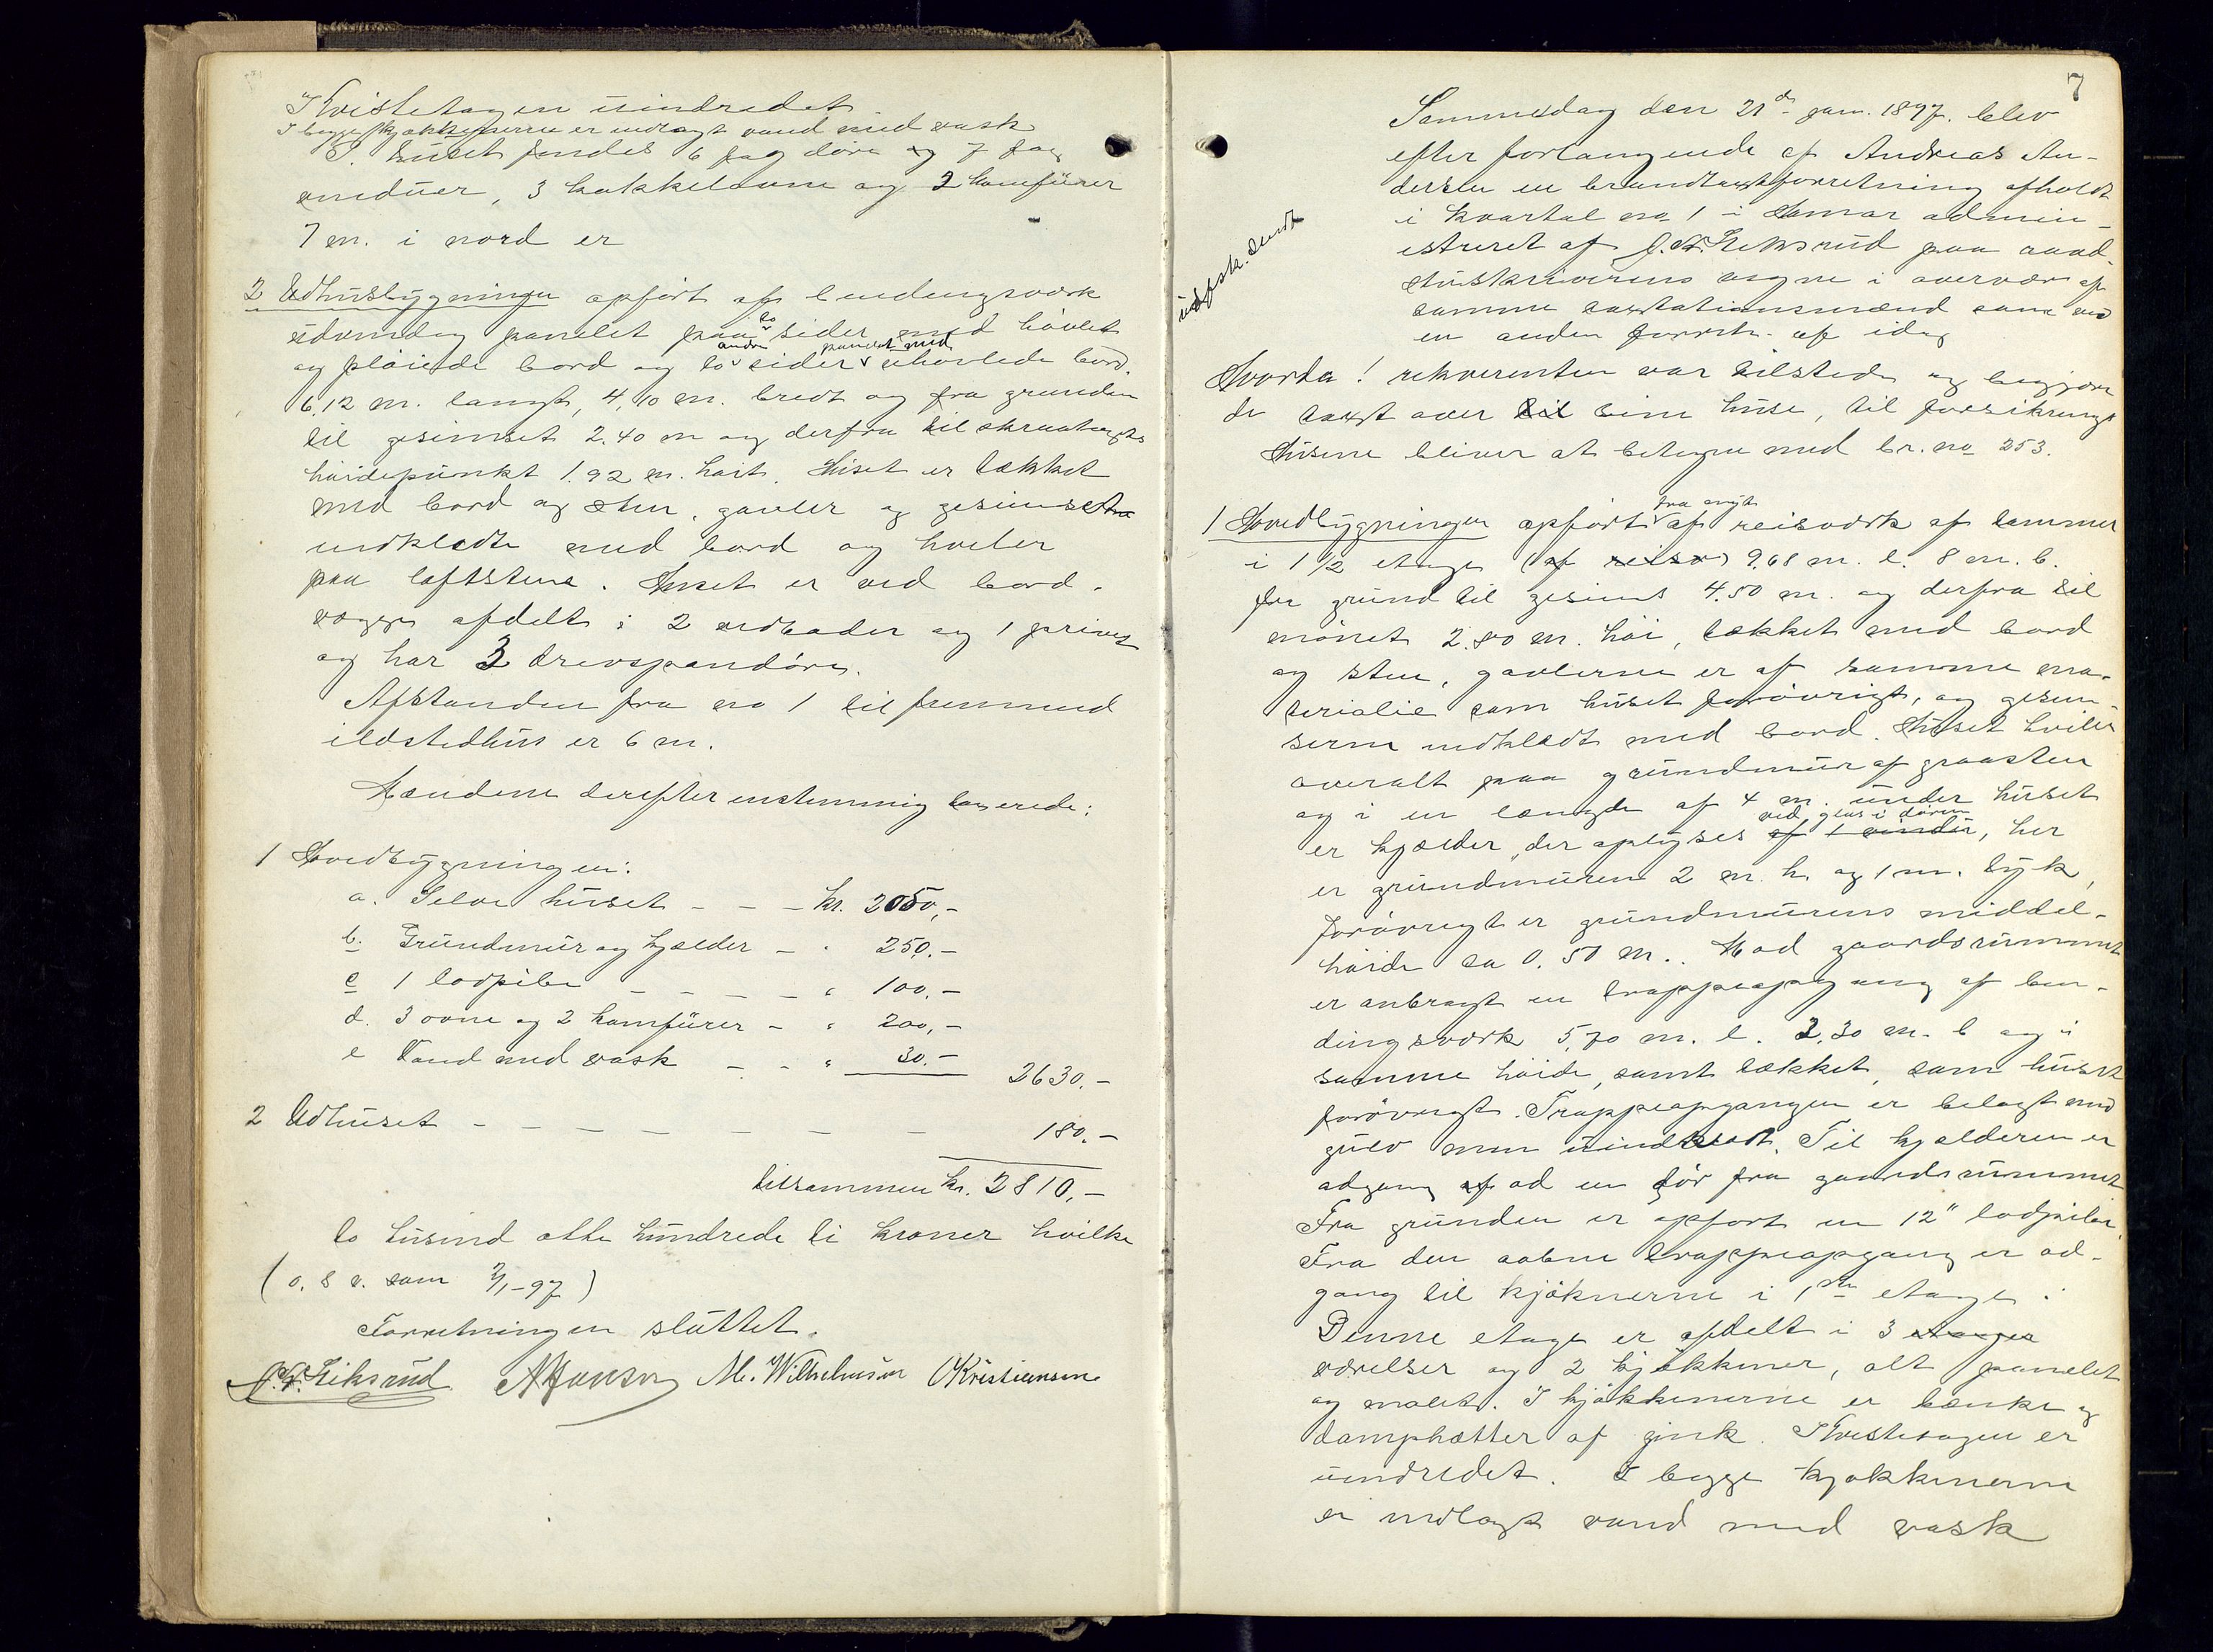 I Kvistetagen uindredet
I begge kjøkkenerne er indlagt vand med vask
I huset findes 6 fag døre og 7 fag
vinduer, 3 kakkelovne og 2 komfürer
7 m. i nord er
2 Udhusbygningen opført af bindingsverk
udvendig panelet paa to sider med høvlet
og pløiede bord og to andre sider panelet med uhøvlede bord.
6,12 m. langt, 4,10 m. bredt og fra grunden
til gesimset 2.40 m og derfra til skraatagets
høidepunkt 1.92 m. høit. Huset er tækket
med bord og sten, gavler og gesimserne
indklædte med bord og hviler
paa løftstene. Huset er ved bord-
vægge afdelt i 2 vedboder og 1 privet
og har 3 drevspandøre.
Afstanden fra no 1 til fremmed
ildstedhus er 6 m.
Mændene derefter enstemmig taxerede:
1 Hovedbygningen:
a. Selve huset - - - kr. 2050,-
b. Grundmur og kjælder - " 250.-
c 1 lodpibe - - - - " 100,-
d. 3 ovne og 2 komfürer - " 200,-
e Vand med vask - - " 30.-
2630.-
2 Udhuset - - - - - - - 180.-
tilsammen kr. 2810,-
to tusind otte hundrede ti kroner hvilke
(o. s v. som 2/1-97)
Forretningen sluttet.
M. Wilhelmsen OKristiansen
7
den 21de jan. 1897. blev
efter forlangende af Andreas An-
dersen en brandtaxtforretning afholdt
i kvartal no 1 i Hamar admin-
istreret af paa raad-
stuskriverens vegne i overvær af
samme taxtationsmænd som ved
en anden forretn. af idag
udfsk. sendt
Hvorda! rekvirenten var tilstede og begjær
de taxt over til sine huse, til forsikring
Husene bliver at betegne med br. no 253.
1 Hovedbygningen opført fra nyt af reisverk af tømmer
i 1 1/2 etage (af reisv) 9.68 m. l. 8 m. b.
fra grund til gesims 4.50 m. og derfra til
mønet 2.80 m. høi, tækket med bord
og sten, gavlerne er af samme ma-
teriale som huset forøvrigt, og gesim-
serne indklædt med bord. Huset hviler
overalt paa grundmur af graasten
og i en længde af 4 m. under huset
er kjælder, der oplyses af 1 vindu ved glas i døren, her
er grundmuren 2 m. h. og 1 m. tyk,
forøvrigt er grundmurens middel-
høide ca 0.50 m.. Mod gaardsrummet
er anbragt en trappeopgang af bin-
dingsverk 5,70 m. l. 2,30 m. b og i
samme høide, samt tækket, som huset
forøvrigt. Trappeopgangen er belagt med
gulv men uindklædt. Til kjælderen er
adgang af ad en dør fra gaardsrummet
Fra grunden er opført en 12" lodpibe.
Fra den aabne trappeopgang er ad-
gang til kjøknerne i 1ste etage.
Denne etage er afdelt i 3 etager
værelser og 2 kjøkkener, alt panelet
og malet. I kjøkkenerne er bænke og
damphætter af zink. I Kvistetagen er
uindredet. I begge kjøkkenerne
er indlagt vand med vask